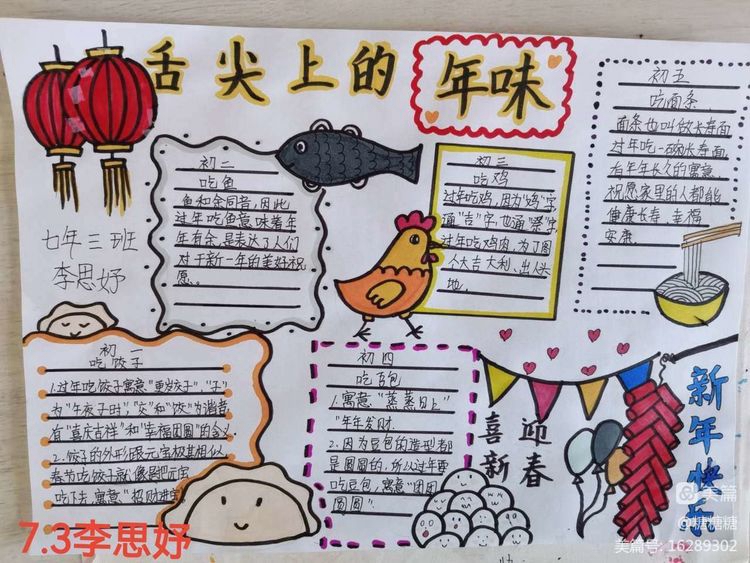 舌尖上的
年味
初五
吃面条
面条也叫做长寿面
过年吃一碗长寿面
有年年长久的寓意
祝愿家里的人都能
健康长寿,幸福
安康.
初二
吃鱼
鱼和余同音,因此
过年吃鱼意味着年
年有余,是表达了人们
对于新一年的美好祝
愿。
初三
吃鸡
过年吃鸡,因为"鸡"字
通"吉"字,也通
过年吃鸡肉,为了图
个大吉大利、出人头
地,
七年三班
李思妤
初一
吃饺子
1.过年吃饺子寓意"更岁交子","子"
为"午夜子时","交"和"饺"为谐音
有"喜庆吉祥"和"幸福团圆"的含义
2.饺子的外形与跟元宝极其相似
春节吃饺子就像是把元宝
吃下去,寓意"招财进宝
初四
吃豆包
1.寓意"蒸蒸日上"
"年年发财.
2.因为豆包的造型都
是圆圆的,所以过年要
吃豆包,寓意"团团
圆圆"
喜迎
新春
新年快乐
7.3李思妤
美篇
@糖糖糖
美篇号: 16289302